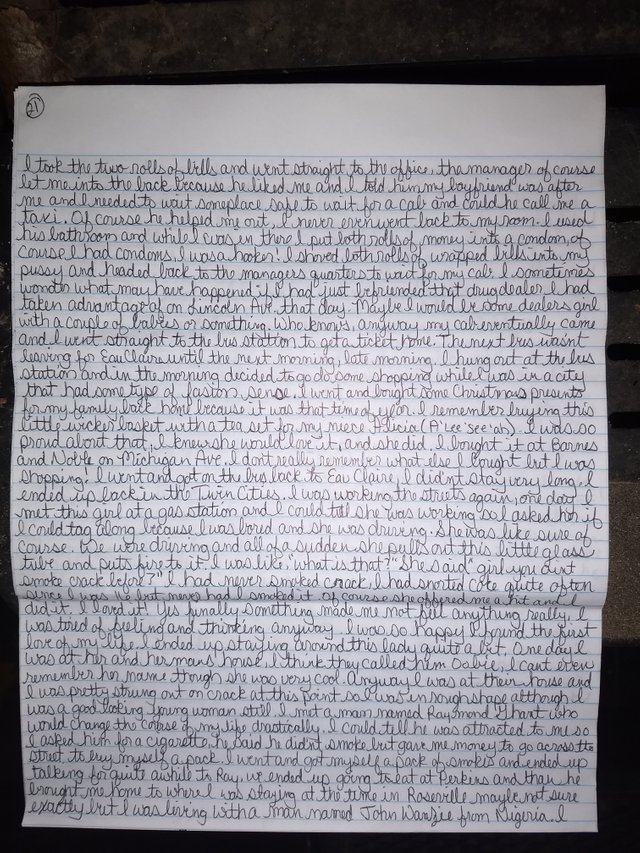 21
I took the two rolls of bills and went straight to the office, tha manager of course
let me into the back because he liked me and I told him my boyfriend was after
me and I needed to wait someplace safe to wait for a cab and could he call me a
taxi. Of course he helped me out, I never even went back to my room. I used
his bathroom and while I was in there I put both rolls of money into a condom, of
course I had condoms, I was a hooker! I shoved both rolls of wrapped bills into my
pussy and headed back to the managers quarters to wait for my cab. I sometimes
wonder what may have happened if I had just befriended that drug dealer I had
taken advantage of on Lincoln Ave. that day. Maybe I would be some dealers girl
with a couple of babies or something. Who knows, anyway my cab eventually came
and I went straight to the bus station to get a ticket home. The next bus wasnt
leaving for Eau Claire until the next morning, late morning. I hung out at the bus
station and in the morning decided to go do some shopping while I was in a city
that had some type of fasion sense. I went and bought some Christmas presents
for my family back home because it was that time of year. I remember buying this
little wicker basket with a tea set for my niece Alicia (A'Lee'see'ah). I was so
proud about that, I knew she would love it, and she did. I bought it at Barnes
and Noble on Michigan Ave. I dont really remember what else I bought but I was
shopping. I went and got on the bus back to Eau Claire, I didn't stay very long, I
ended up back in the Twin Cities. I was working the streets again, one day I
met this girl at a gas station and I could tell she was working so I asked her if
I could tag along because I was bored and she was driving. She was like sure of
course. We were driving and all of a sudden she pulls out this little glass
tube and puts fire to it. I was like, "what is that?" She said "girl you aint
smoke crack before?" I had never smoked crack, I had snorted coke quite often
since I was but never had I smoked it. Of course she offered me a hit and I
did it. I loved it! Yes finally something made me not feel anything really, I
was tired of feeling and thinking anyway. I was so happy I found the first
love of my life. I ended up staying around this lady quite a bit. One day I
was at her and her mans house, I think they called him I cant even
remember her name though she was very cool. Anyway I was at their house and
I was pretty strung out on crack at this point so I was in rough shape although I
was a good looking young woman still. I met a man named Raymond Ghart who
would change the course of my life drastically. I could tell he was attracted to me so
I asked him for a cigarette, he said he didnt smoke but gave me money to go across the
street to buy myself a pack. I went and got myself a pack of smokes and ended up
talking for quite awhile to Ray, we ended up going to eat at Perkins and than he
brought me home to where I was staying at the time in Roseville maybe not sure
exactly but I was living with a man named John from Nigeria. I